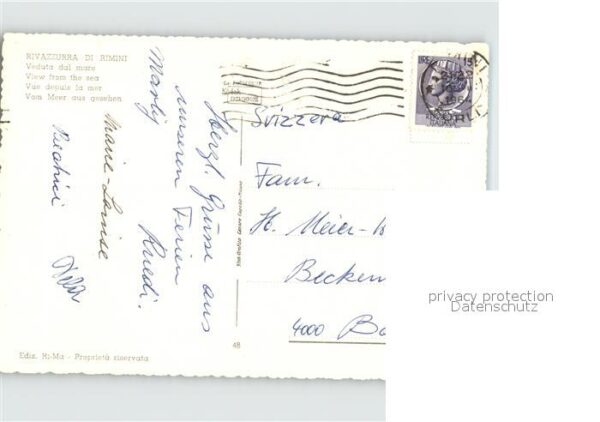 RIVAZZURRA DI RIMINI
Veduta dal mare
View from the sea
Vue depuis la mer
Vom Meer aus gesehen
Herzl. Grüsse aus
unseren Ferien
Marly Ruedi.
Marie-Louise
Beatrice
Svizzera
Fam.
H. Meier-
Becken
4000 Ba
48
Ediz. Ri-Ma - Proprietà riservata
privacy protection
Datenschutz